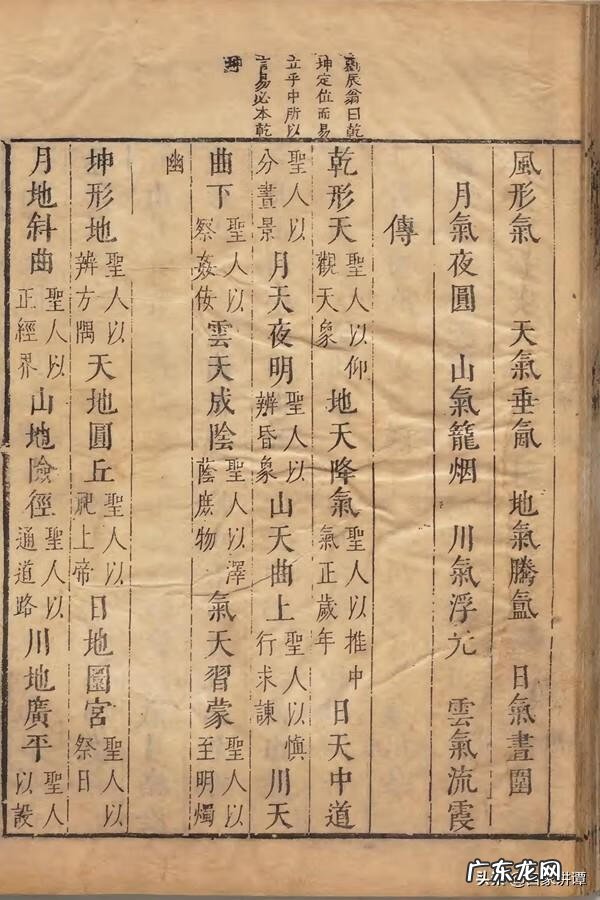 劉辰翁曰乾
坤定位而易
立乎中所以
言易必本乾
坤
風形氣 天氣垂氤 地氣騰氳 日氣晝圍
月氣夜圓 山氣籠烟 川氣浮光 雲氣流霞
傳
乾形天聖人以仰觀天象地天降氣聖人以推中氣正歲年日天中道
聖人以分晝景月天夜明聖人以辨昏象山天曲上聖人以慎行求諫川天
曲下聖人以察姦佞雲天成陰聖人以澤蔭庶物氣天習蒙聖人以至明燭
幽
坤形地聖人以辨方隅天地圓丘聖人以祀上帝日地圜宮聖人以祭日
月地斜曲聖人以正經界山地險徑聖人以通道路川地廣平聖人以設
广东龙网